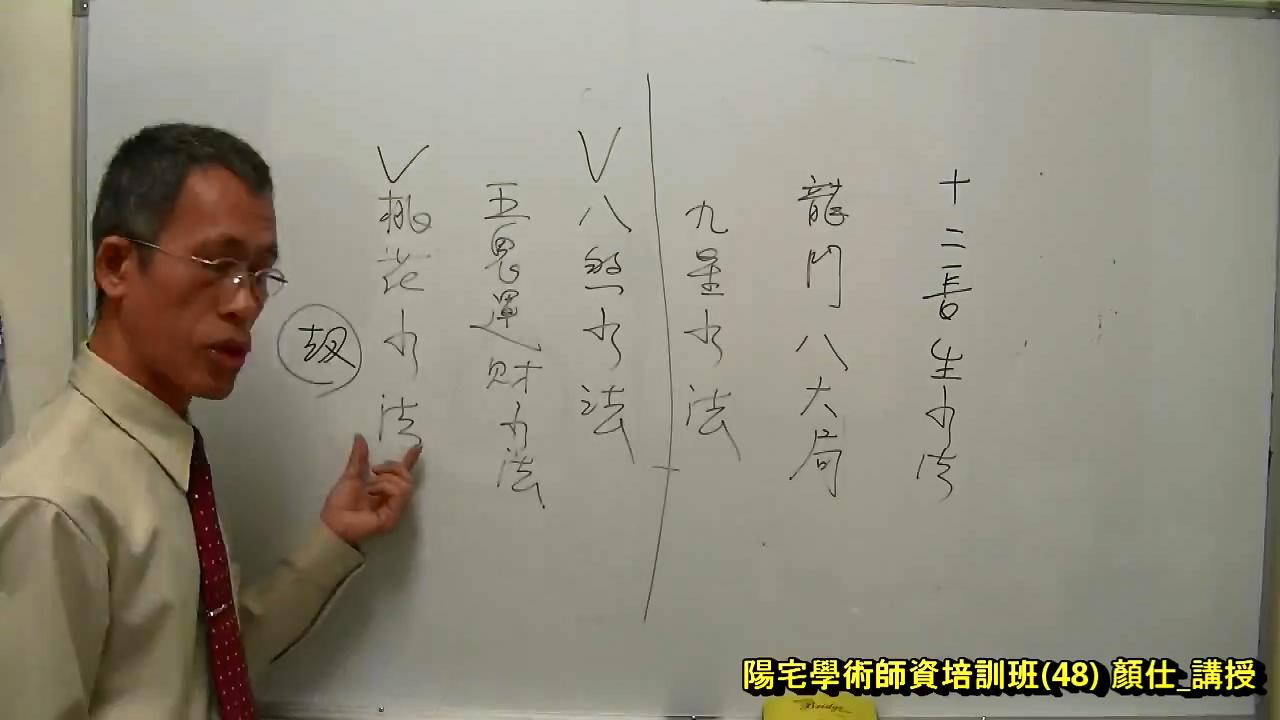 十二長生水法
龍門八大局
九星水法
V八煞水法
五鬼運財水法
V桃花水法
陽宅學術師資培訓班(48) 顏仕_講授
Bridge